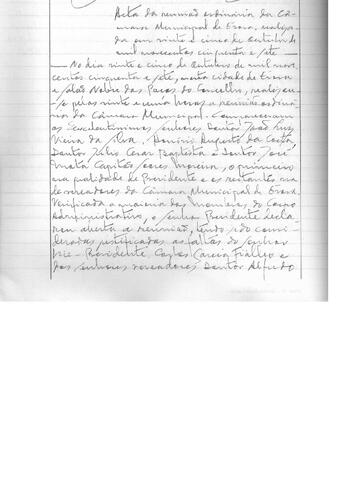 Acta da reunião ordinária da Câ-
mara Municipal de Évora, realiza-
da em vinte e cinco de Outubro de
mil novecentos cinquenta e sete
No dia vinte e cinco de Outubro de mil nove-
centos cinquenta e sete, nesta cidade de Évora
e Salão Nobre dos Paços do Concelho, realizou-
se pelas vinte e uma horas a reunião ordiná-
ria da Câmara Municipal. Compareceram
os Excelentíssimos senhores Doutor João Luiz
Vieira da Silva, Domício Augusto da Costa
Santos, Júlio Cesar Baptista e Doutor José
Mata Capitão Soares Moreira, o primeiro
na qualidade de Presidente e os restantes na
de vereadores da Câmara Municipal de Évora.
Verificada a maioria dos membros do Corpo
Administrativo, o senhor Presidente decla-
rou aberta a reunião, tendo sido consi-
deradas justificadas as faltas do senhor
Vice-Presidente, Carlos Garcia Fialho e
dos senhores vereadores Doutor Alfredo